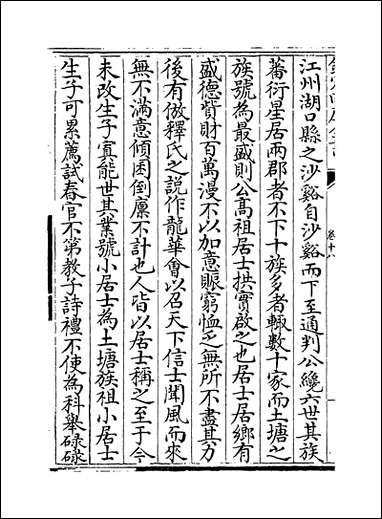 欽定四庫全書
卷十八
江州湖口縣之沙谿自沙谿而下至通判公纔六世其族
蕃衍星居兩郡者不下十族多者輙數十家而土塘之
族號為最盛則公髙祖居士拱實啟之也居士居鄉有
盛德貲財百萬漫不以加意賑窮恤乏無所不盡其力
後有倣釋氏之說作龍華會以召天下信士聞風而來
無不滿意傾囷倒廩不計也人皆以居士稱之至于今
未改生子寘能世其業號小居士為土塘族祖小居士
生子可累薦試春官不第教子詩禮不使為科舉碌碌